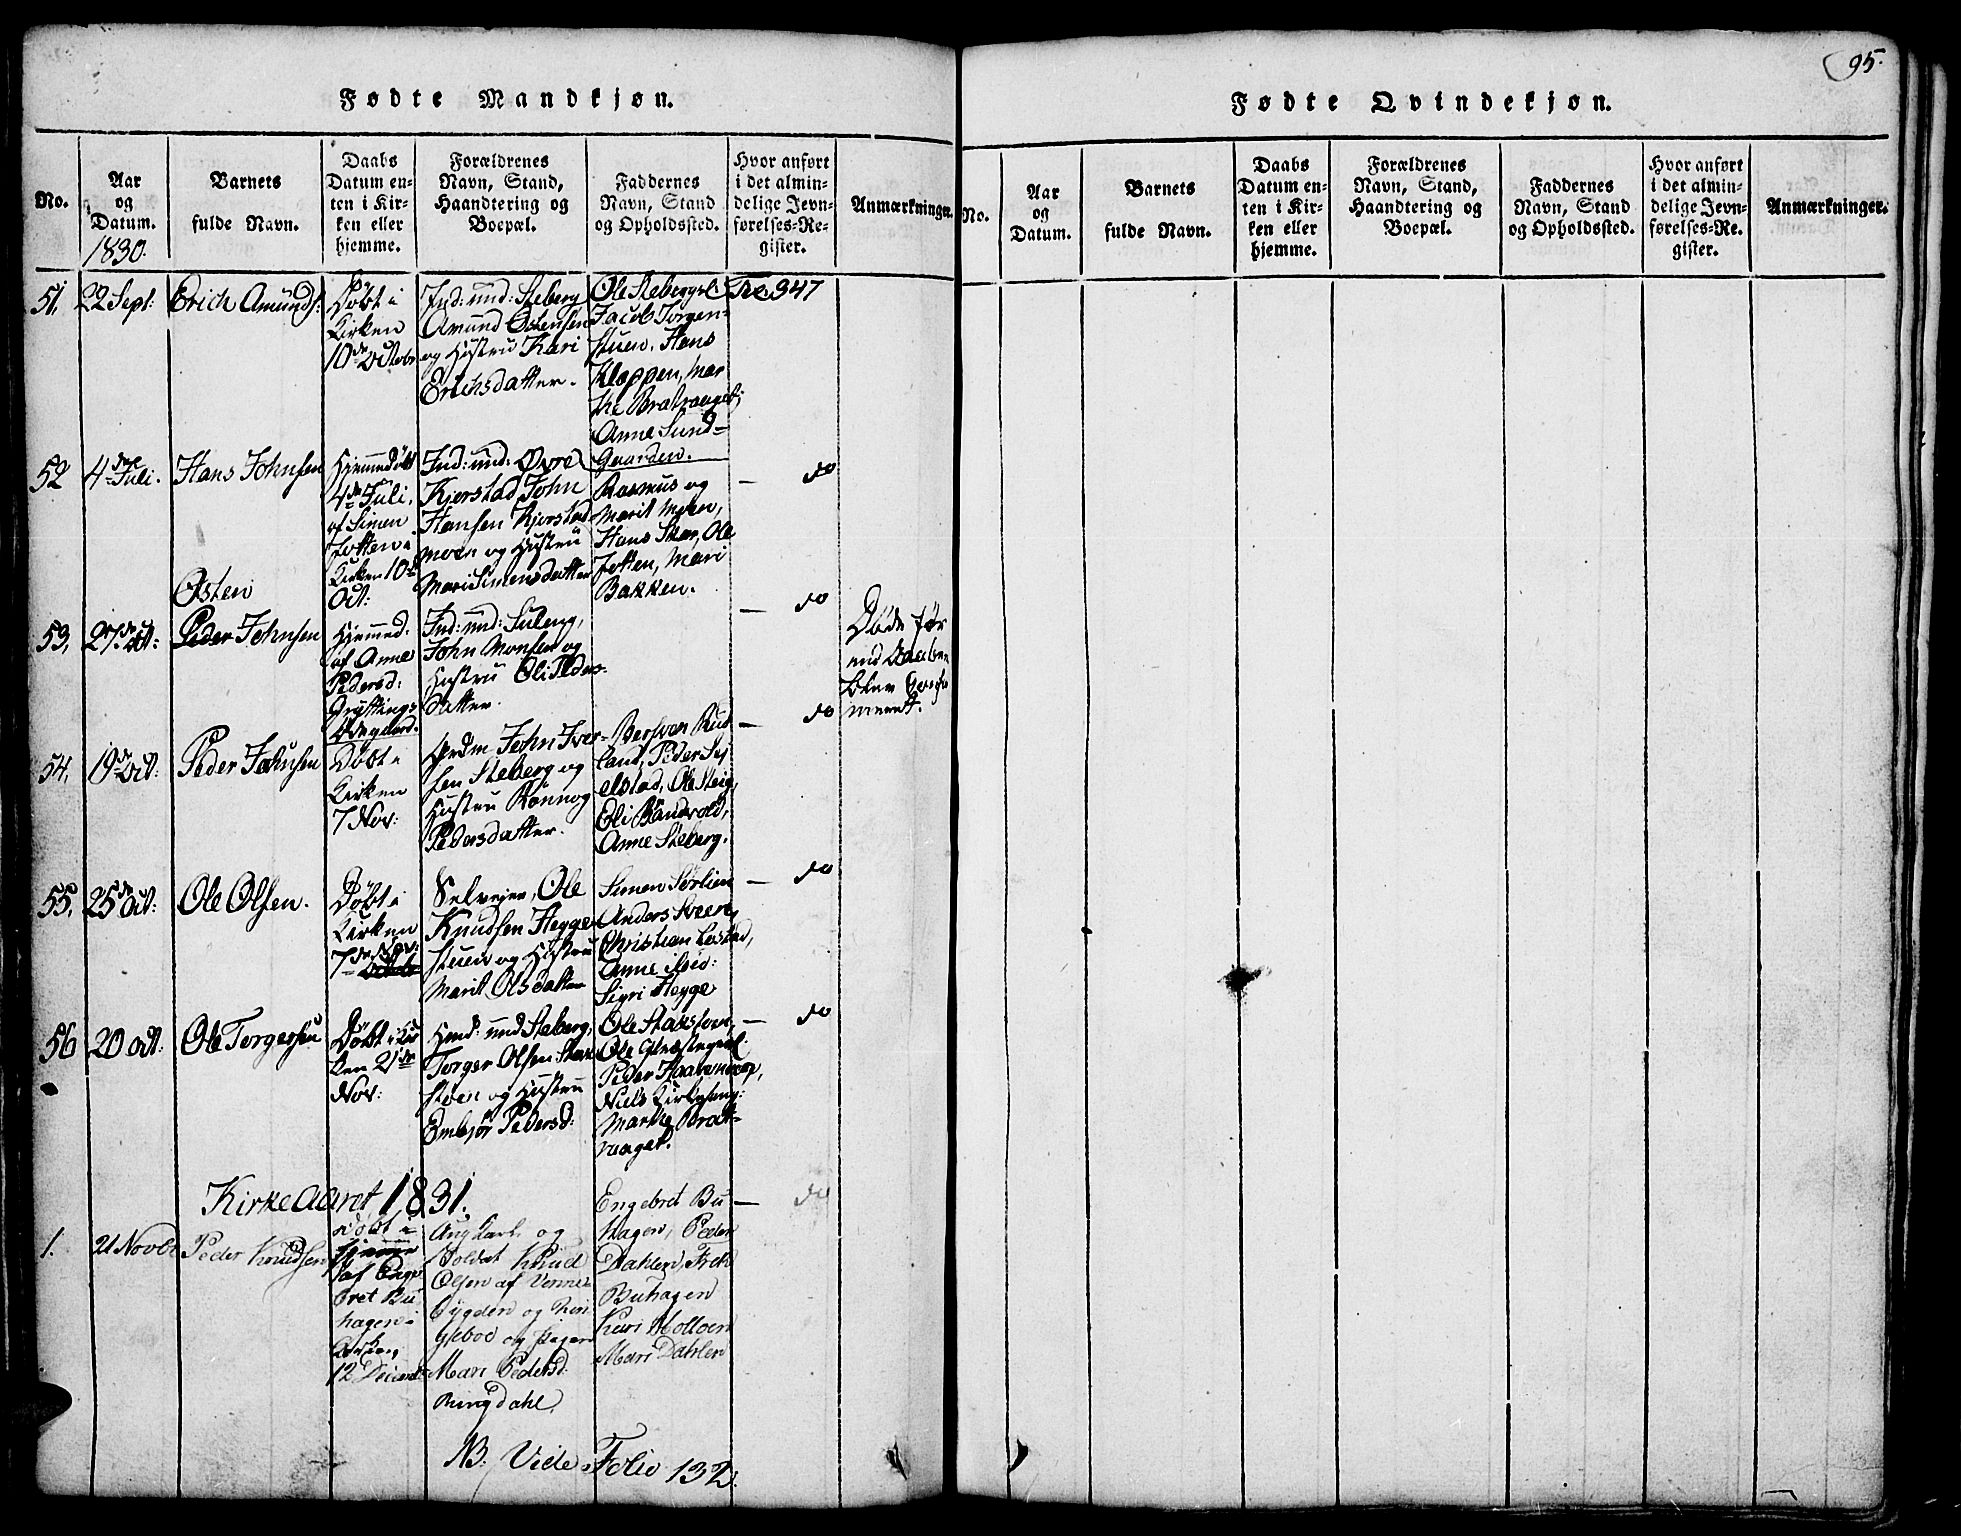 95.
Fødte Mandkjøn.
No.
Aar
og
Datum.
1830.
Barnets
fulde Navn.
Daabs
Datum en-
ten i Kir-
ken eller
hjemme.
Forældrenes
Navn, Stand,
Haandtering og
Boepæl.
Faddernes
Navn, Stand
og Opholdssted.
Hvor anført
i det almin-
delige Jevn-
førelses-Re-
gister.
Anmærkninger.
51.
22 Sept:
Erich Amunds:
Døbt i
Kirken
10de Octobr
Ind: und: Steberg
Amund Østensen
og Hustru Kari
Erichsdatter.
Ole Stebergsl:
Jacob Jorgen-
stuen. Hans
Kloppen, Mar
the Bratvaaget,
Anne Sund-
Gaarden.
347
52
4de Juli.
Hans Johnsen
Hjemmedøbt
4de Juli,
af Simen
Jotten i
Kirken 10de
Oct:
Ind: und: Øvre
Kjorstad John
Hansen Kjorstad
moen og Hustru
Mari Simensdatter
Rasmus og
Marit Moen,
Hans Skar, Ole
Jotten, Mari
Bakken.
— do
53.
27de Oct:
Østen
Peder Johnsen
Hjemmed:
af Anne
Pedersd:
Gryttings
Ødegaard.
Ind: und: Suleng,
John Monsen og
Hustru Oli Peders
datter.
— do
Døde før
end Daaben
blev Confir
meret.
54.
19de Oct:
Peder Johnsen
Døbt i
Kirken
7 Nov:
John Iver-
sen Steberg og
Hustru Rønnog
Pedersdatter.
Bersvon Rud
land, Peder Sy
elstad, Ole Steig,
Eli Baukvold,
Anne Steberg.
— do
55.
25de Oct:
Ole Olsen.
Døbt i
Kirken
7de Nov:
Selveier, Ole
Knudsen Hegge
stuen og Hustru
Marit Olsdatter
Simen Sørlien
Anders Sveen,
Christian Lostad,
Anne ibid:
Sigri Hegge
— do
56
20 Oct:
Ole Torgersen
Døbt i Kir
ken 21de
Nov:
Huusd: und Steberg,
Torger Olsen Stak
støen og Hustru
Embjør Pedersd:
Ole Stakstoen,
Ole Præstegaal:
Peder Haavercop,
Niels Kirkeseng:
Marthe Brat-
vaaget.
— do
Kirke Aaret 1831.
1.
21 Novbr
Peder Knudsen
døbt i
af Enge
bret Bu
hagen i
Kirken
12 Decemb
Ung Karl og
Soldat Knud
Olsen af Venne
bygden og Rin
geboe og Pigen
Mari Pedersd:
Ringdahl.
Engebret Bu
hagen, Peder
Dahlen, Frek
Buhagen
Kari Molloen
Mari Dahlen
— do
NB. Vide Folio 132.
Fødte Qvindekjøn.
No.
Aar
og
Datum.
Barnets
fulde Navn.
Daabs
Datum en-
ten i Kir-
ken eller
hjemme.
Forældrenes
Navn, Stand,
Haandtering og
Boepæl.
Faddernes
Navn, Stand
og Opholdssted.
Hvor anført
i det almin-
delige Jevn-
førelses-Re-
gister.
Anmærkninger.